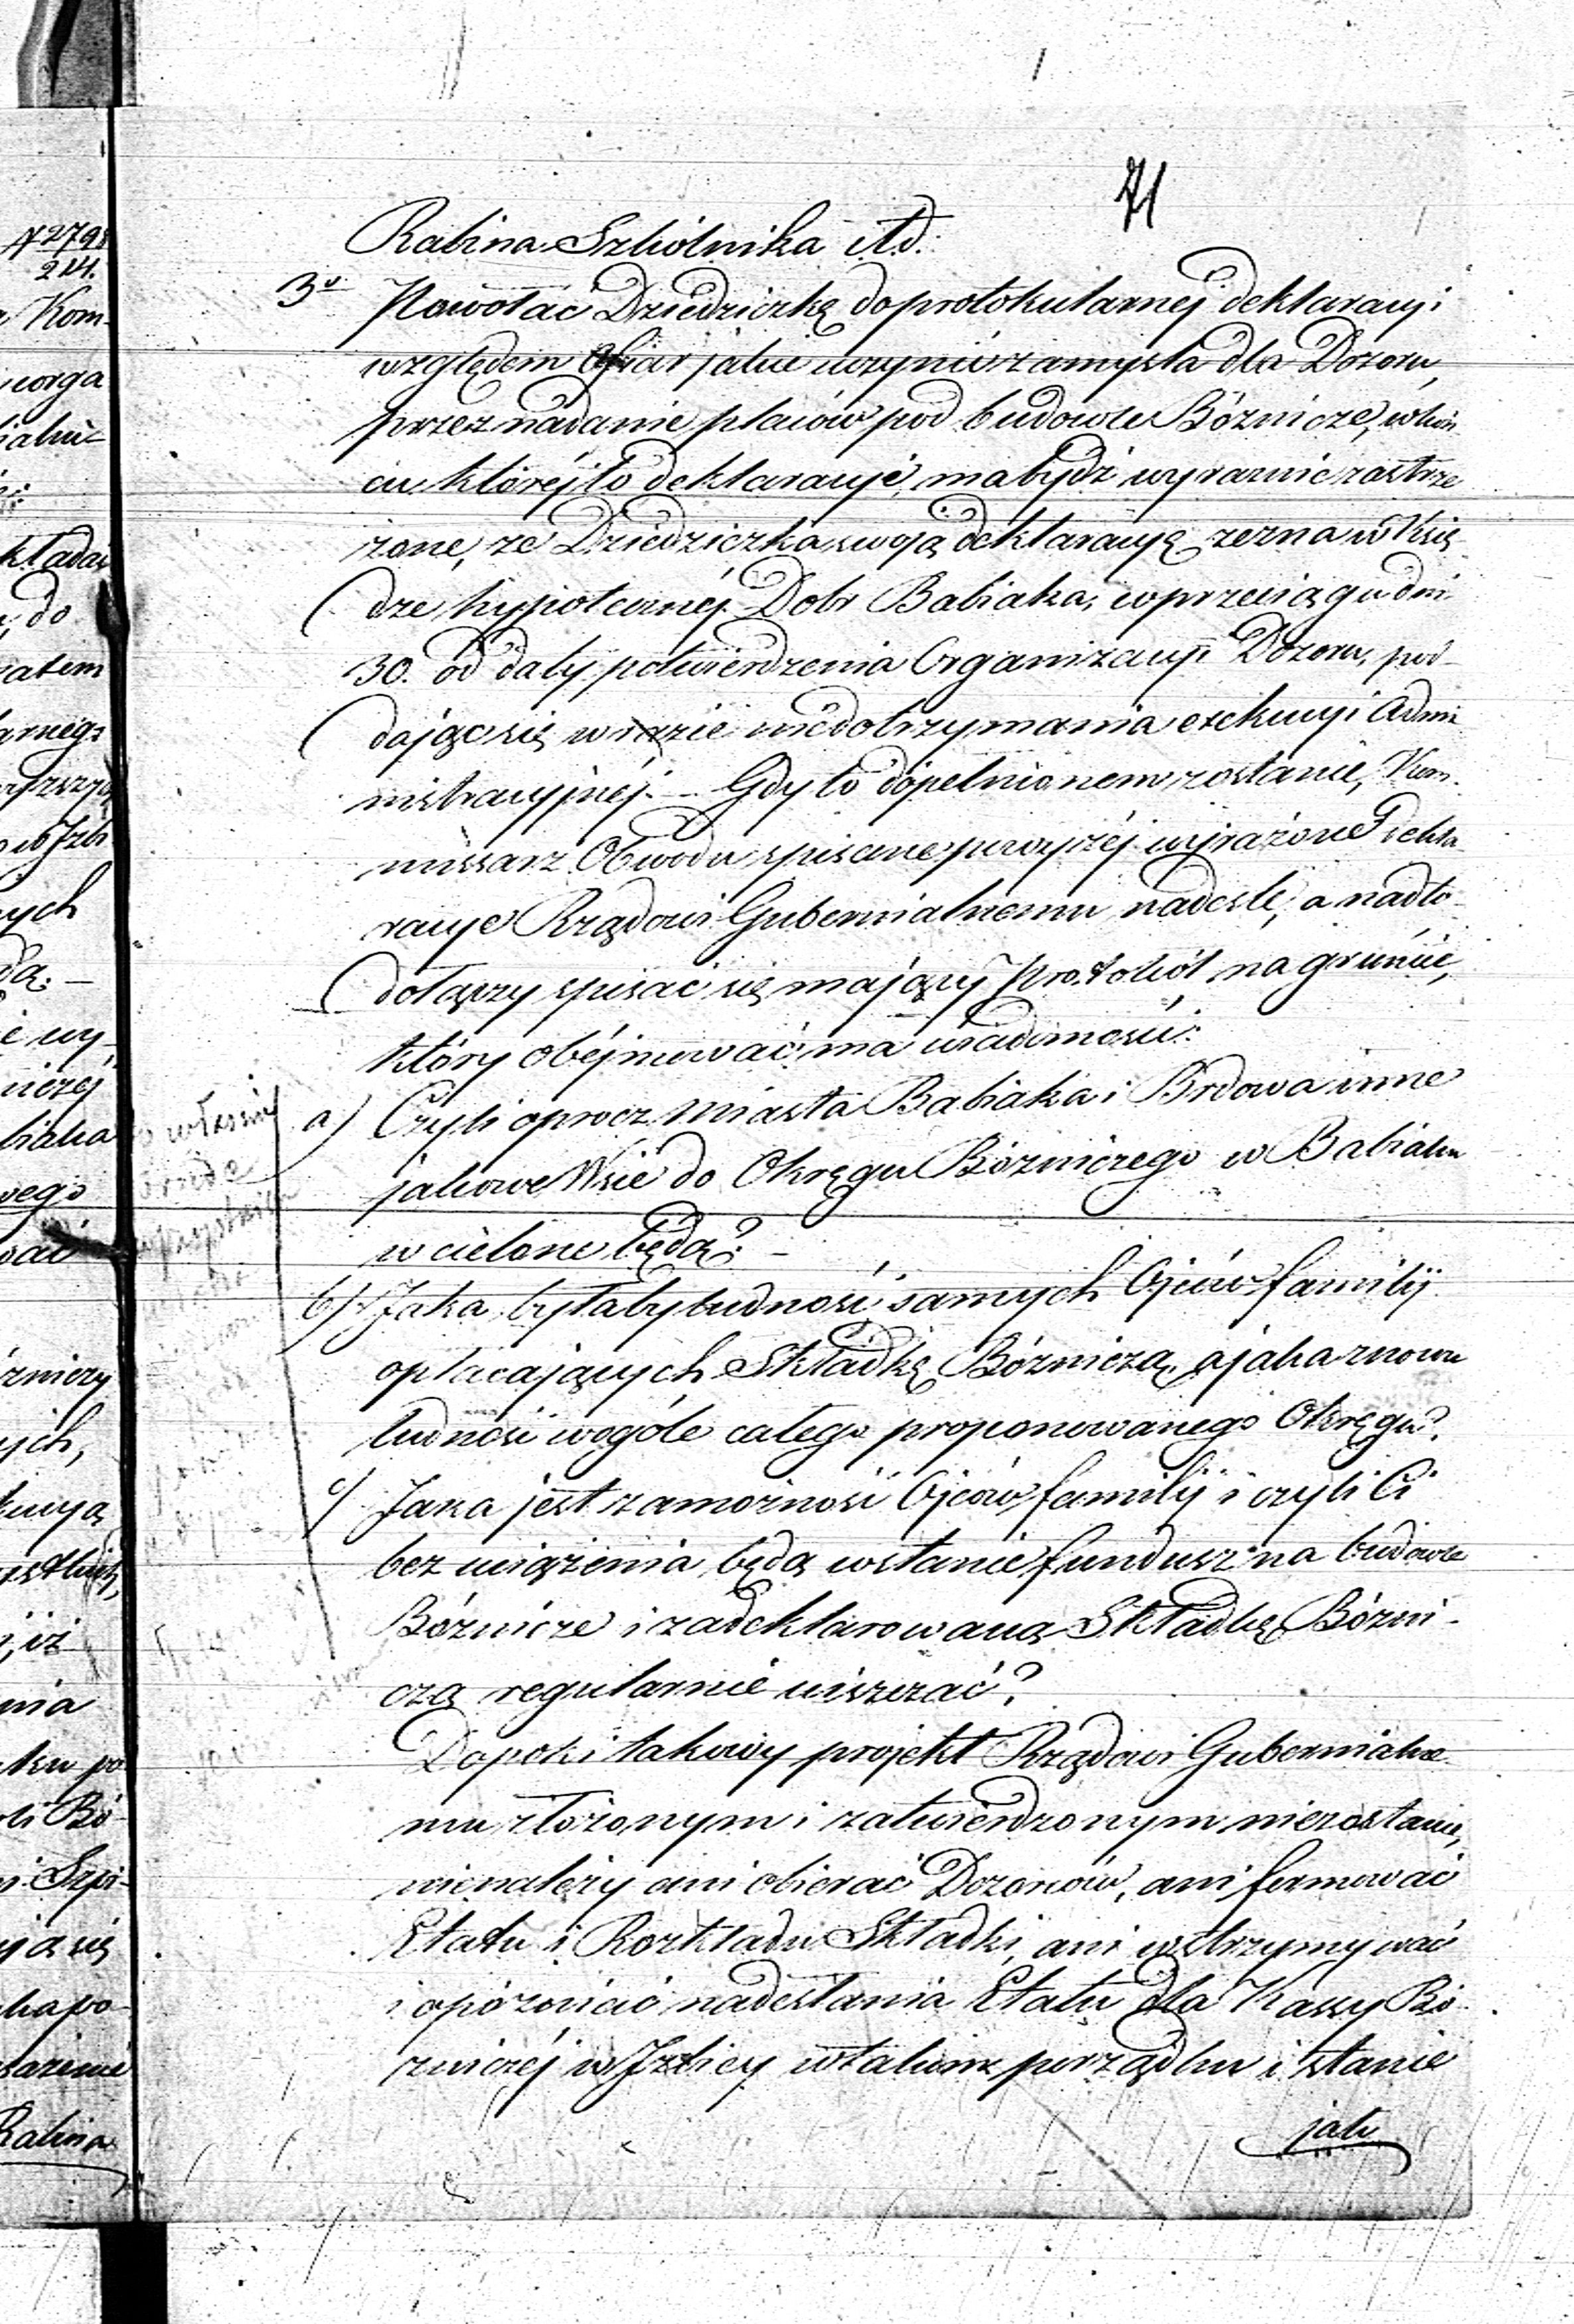 71
Rabina Szkolnika itd:
3o Powołać Dziedziczkę do protokularnej deklaracyi
względem ofiar jakie uczynić zamyśla dla Dozoru,
przez nadanie placów pod budowle Bóżnicze, w koń
cu której to deklaracyi, ma bydź wyraźnie zastrze
żone, że Dziedziczka swoją deklaracyę zezna w Księ
dze hypotecznéj Dobr Babiaka, w przeciągu dni
30. od daty potwierdzenia Organizacyi Dozoru, pod-
dając się w razie niedotrzymania exekucyi Admi
nistracyjnéj. – Gdy to dopełnionem zostanie, Kom-
missarz Obwodu spisane powyżéj wyrażone dekla
racye Rządowi Gubernialnemu nadeśle, a nadto
dołączy spisać się mający protokół na gruncie,
który obéjmować ma wiadomość:
a) Czyli oprocz Miasta Babiaka i Brdowa inne
jakowe Wsie do Okręgu Bóżniczego w Babiaku
wcielone będą? –
b) Jaka byłaby ludność samych Ojców familij
opłacających Składkę Bóżniczą, a jaka znowu
ludność wogóle całego proponowanego Okręgu?
c) Jaka jest zamożność Ojców familij i czyli Ci
bez uciążenia będą wstanie fundusz na budowle
Bóżnicze i zadeklarowaną Składkę Bóżni-
czą regularnie uiszczać?
Dopoki takowy projekt Rządowi Gubernialne
mu złożonym i zatwierdzonym niezostanie,
nienależy ani obierać Dozorców, ani formować
Etatu i Rozkładu Składki, ani wstrzymywać
i opóźniać nadesłania Etatu dla Kassy Bó-
żniczéj w Izbicy w takim porządku i stanie
jak